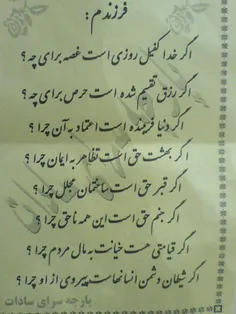 فرزندم :
اگر خدا کفیل روزی است غصه برای چه ؟
اگر رزق تقسیم شده است حرص برای چه ؟
اگر دنیا فریبنده است اعتماد به آن چرا ؟
اگر بهشت حق است تظاهر به ایمان چرا ؟
اگر قبر حق است ساختمان مجلل چرا ؟
اگر جهنم حق است این همه ناحق چرا ؟
اگر قیامتی هست خیانت به مال مردم چرا ؟
اگر شیطان دشمن انسانهاست پیروی از او چرا ؟
پارچه سرای سادات